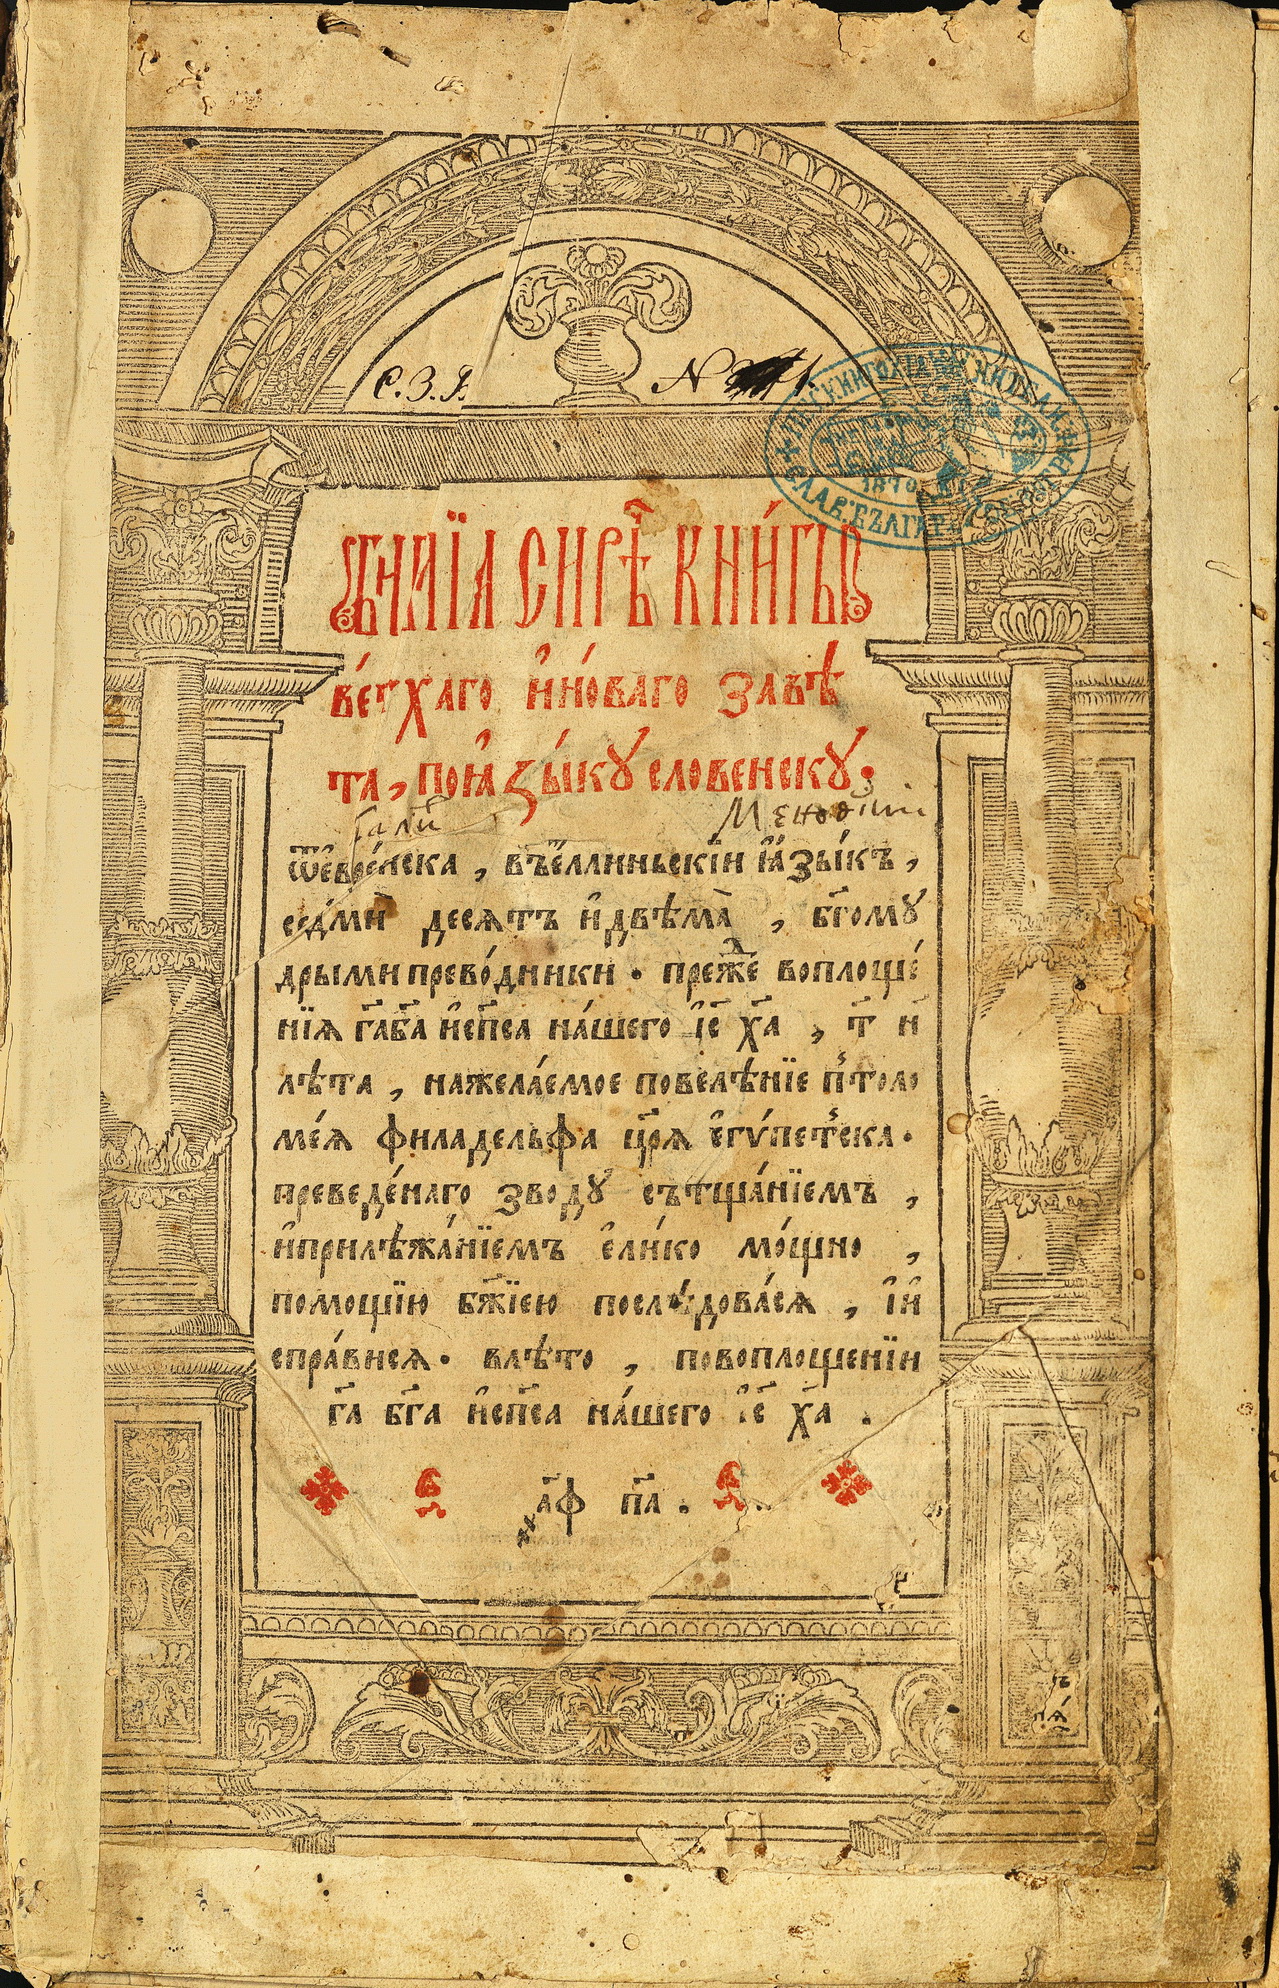 С. З. І. N
БИ҃БЛЇА СИРѢ҃ КНИ́ГЫ
ве́тхаго и҆но́ваго завѣ
та, поꙗ҆зы́ку словенску.
ѿе҆вре́иска, въе҆́ллиньскїи ꙗ҆зы́къ,
седми́ десятъ и҆двѣма̀, бг҃ому
дрыми прево́дники. преже воплоще́
нїя га҃ бг҃а и҆сп҃са на́шего і҆с҃ х҃а, т҃ и
лѣта, нажела́емое повелѣнїе птоло
ме́я филадельфа цр҃я е҆гѵ́петска.
преведе́наго зводу̀ сътща́нїемъ,
и҆прилѣжа́нїемъ е҆ли́ко мо́щно,
помощїю бж҃їею послѣдова́ся, и҆и
спра́вися. влѣто, повоплощенїи
га҃ бг҃а и҆сп҃са на́шего і҆с҃ х҃а.
а҃ф п҃а.
1870